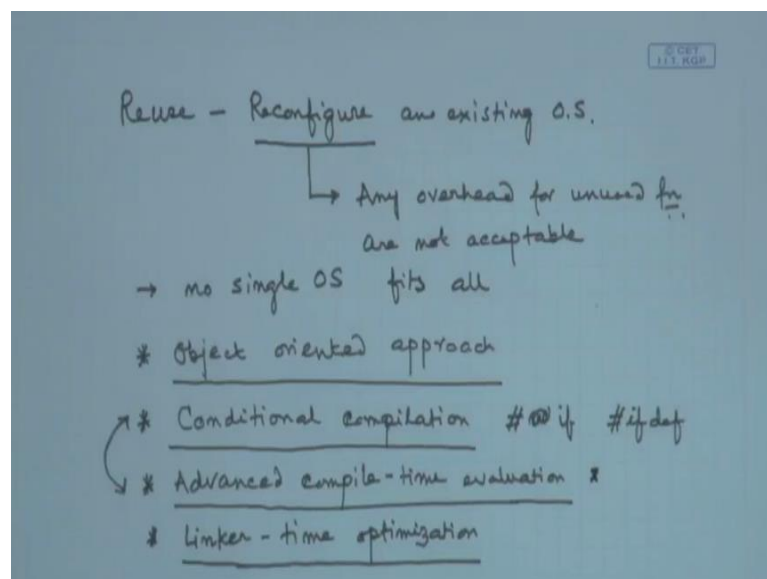 © CET
I.I.T. KGP
Reuse – Reconfigure an existing O.S.
→ Any overhead for unused fn.
are not acceptable
→ no single OS fits all
* Object oriented approach
* Conditional compilation #if #ifdef
* Advanced compile-time evaluation *
* Linker-time optimization